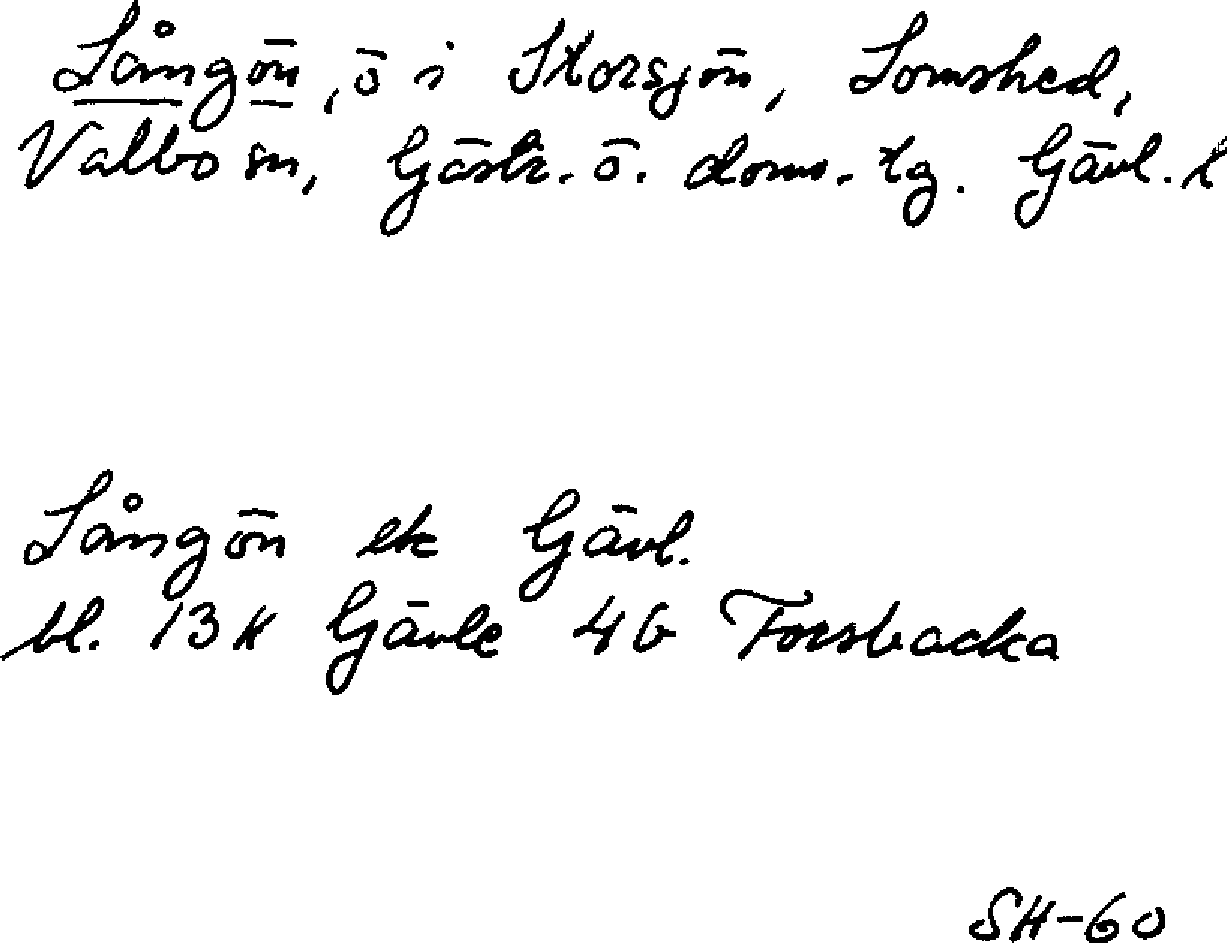 Långön, ö i Storsjön, Lomshed,
Valbo sn, Gästr. ö. doms. tg. Gävl. l
Långön ek Gävl.
bl. 13 H Gävle 4 G Forsbacka
SH-60